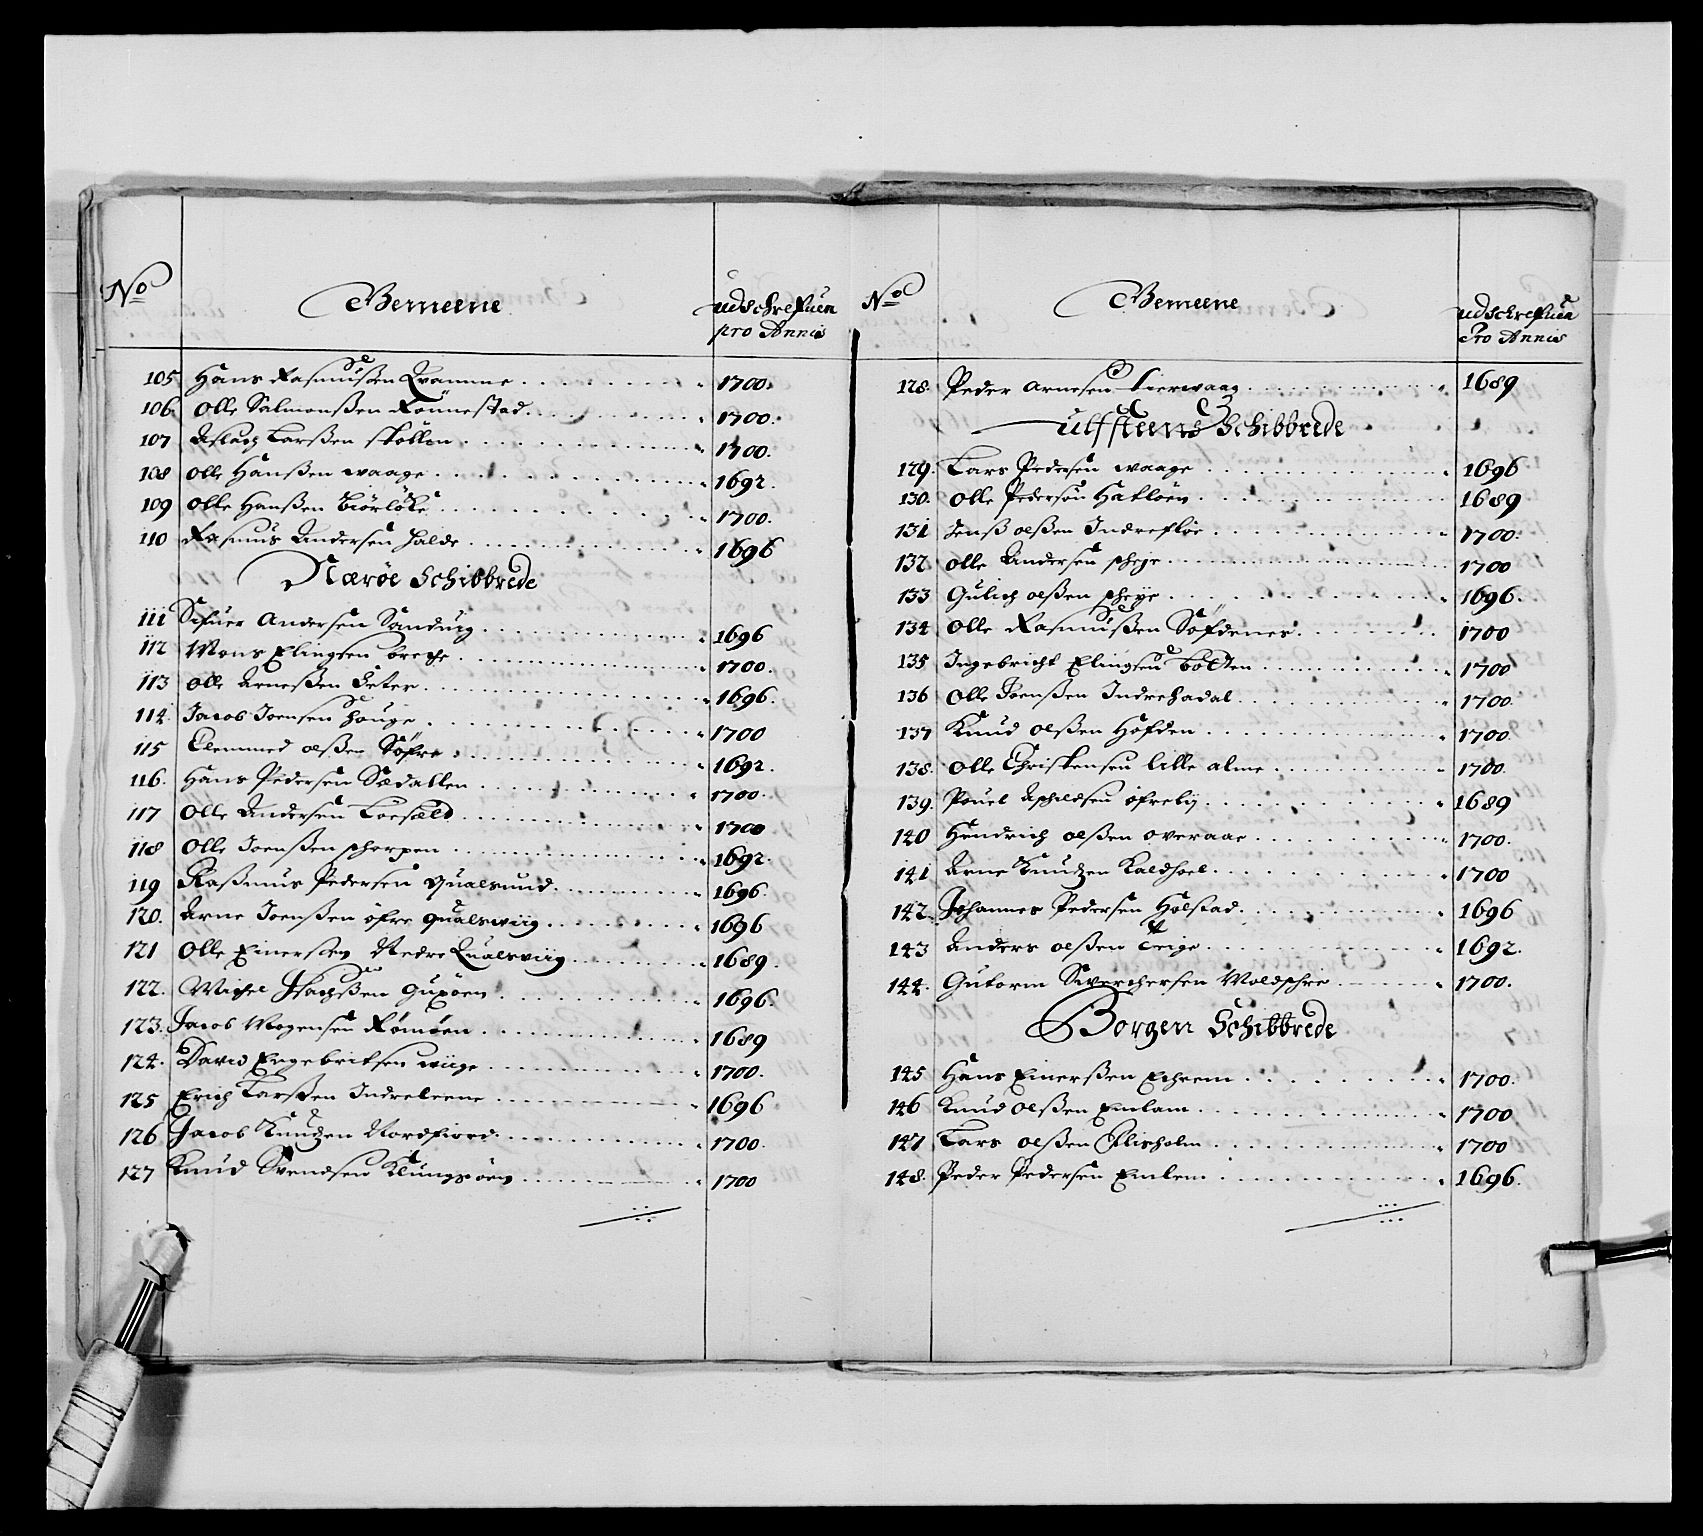 No Gemeene udschrefuen pro Annis
105 Hans Rasmusßen Qvamme 1700.
106. Olle Salmonßen Rönnestad 1700.
107 Aslach Larßen skotten 1700.
108 Olle Hanßen waage 1692.
109 Olle Hanßen Biörlöke 1700.
110 Rasmus Andersen halde 1696
Nærøe Schibbrede
111 Sifuer Andersen Sanduig 1696
112 Mons Elingsen breche 1700.
113 Olle Arneßen Seter 1696.
114. Jacob Joensen houge 1700
115 Clemmed olßen Söfre 1692.
116. Hans Pedersen Sædallen 1700.
117 Olle Andersen Loesæld 1700
118 Olle Joenßen scharpen 1692.
119 Raßmus Pedersen Qualsund 1696.
120. Arne Joenßen öfre qualswiig 1696
121 Olle Einersen Nedre Qualswiig 1689.
122. Michel Isachßen Guxöen 1696.
123. Jacob Mogensen Römöen 1689
124. David Engebritsen wiige 1700.
125 Erich Larßen Indreleene 1696
126 Jacob Knudzen Nordfiord 1700.
127 Knud Svendsen Klungsöer 1700
No Gemeene udschrefuen Pro Annis
128. Peder Arnesen Lierwaag 1689
Ulfsteens Schibbrede
129. Lars Pedersen waage 1696
130. Olle Pedersen Hatlöen 1689
131 Jenß olßen Indrefloe 1700.
132 Olle Andersen scheje 1700
133 Gulich olßen scheye 1696.
134 Olle Rasmusßen Söfdenes 1700
135 Ingebricht Elingsen botten 1700
136 Olle Joenßen Indrehadal 1700.
137 Knud olßen Höfden 1700.
138. Olle Christensen lille alme 1700.
139. Pouel Aschildsen öfreby 1689
140 Hendrich olßen overaae 1700.
141 Arne Knudzen Kaldhoel 1700
142. Johannes Pedersen Holstad 1696
143 Anders olßen Teige 1692.
144. Gutorm Siverchersen Woldschre 1700.
Borgen Schibbrede
145 Hans Einerßen Echrem 1700.
146 Knud olßen Emlam 1700
147 Lars olßen Flisholm 1700
148. Peder Pedersen Emlem 1696.